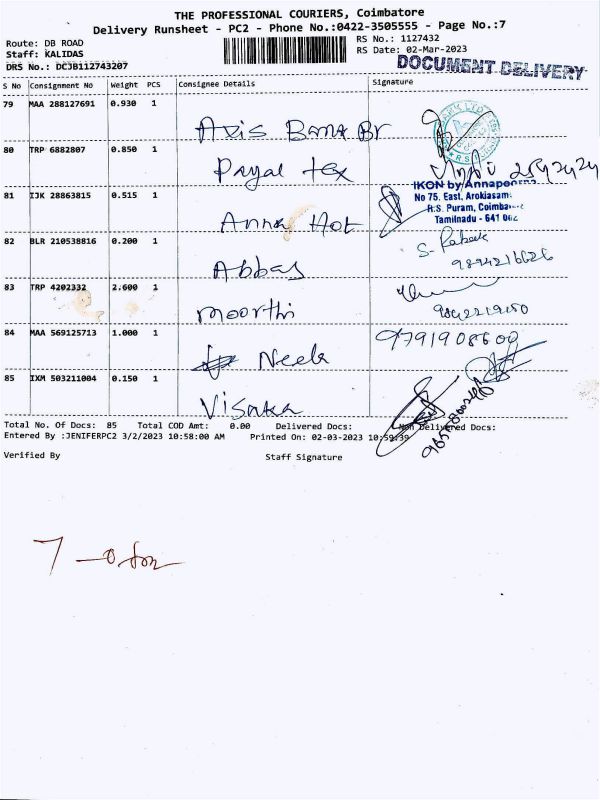 THE PROFESSIONAL COURIERS, Coimbatore
Delivery Runsheet - PC2 - Phone No.:0422-3505555 - Page No.:7
Route: DB ROAD
RS No.: 1127432
Staff: KALIDAS
RS Date: 02-Mar-2023
DRS No.: DCJB112743207
DOCUMENT DELIVERY
S No Consignment No Weight PCS Consignee Details Signature
79 MAA 288127691 0.930 1
Axis Bank Br
80 TRP 6882807 0.850 1
Payal tex
81 IJK 28863815 0.515 1
IKON by Annapoorna
No 75, East, Arokiasam
R.S. Puram, Coimba
Tamilnadu - 641 002
Anna Hot
82 BLR 210538816 0.200 1
Abbas
9894216626
83 TRP 4202332 2.600 1
moorthi
9842219150
84 MAA 569125713 1.000 1
Neela
9791908600
85 IXM 503211004 0.150 1
Visaka
Total No. Of Docs: 85 Total COD Amt: 0.00 Delivered Docs: Non Delivered Docs:
Entered By :JENIFERPC2 3/2/2023 10:58:00 AM Printed On: 02-03-2023 10:59:39
Verified By Staff Signature
7